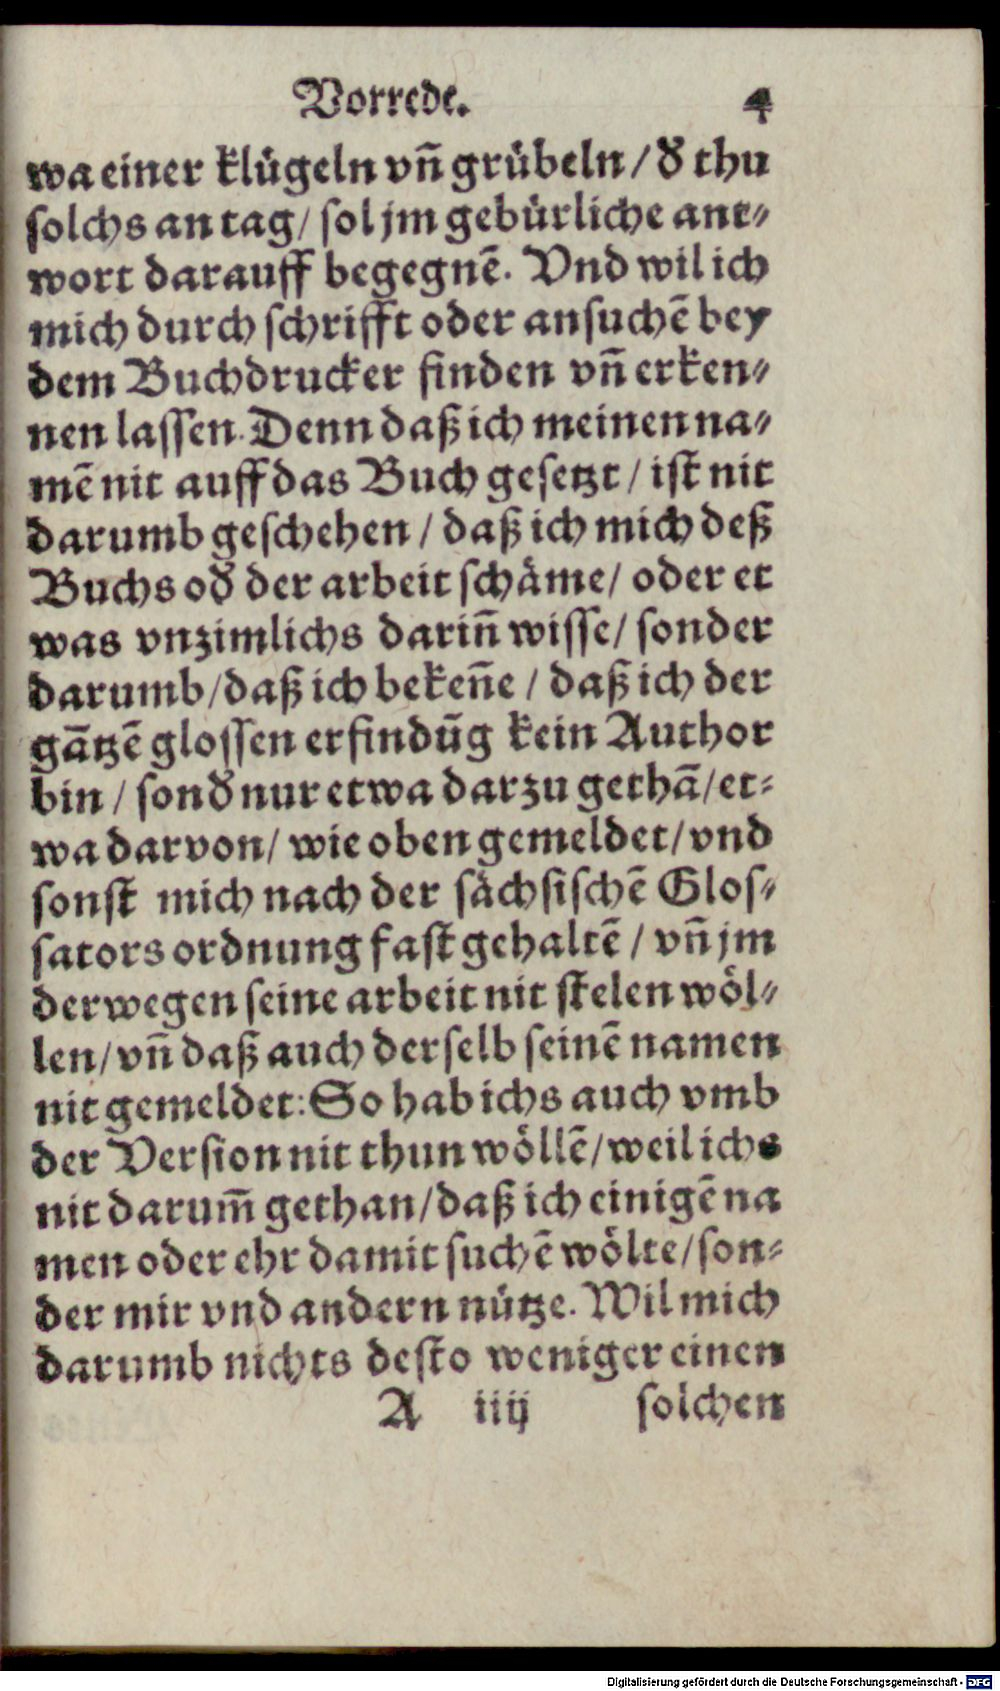 Vorrede. 4
wa einer klügeln vñ grübeln / đ thu
solchs an tag / sol jm gebürliche ant⸗
wort darauff begegnē. Vnd wil ich
mich durch schrifft oder ansuchē bey
dem Buchdrucker finden vñ erken⸗
nen lassen. Denn daß ich meinen na⸗
mē nit auff das Buch gesetzt / ist nit
darumb geschehen / daß ich mich deß
Buchs ođ der arbeit schäme / oder et
was vnzimlichs dariñ wisse / sonder
darumb / daß ich bekeñe / daß ich der
gātzē glossen erfindūg kein Author
bin / sonđ nur etwa darzu gethā / et⸗
wa darvon / wie oben gemeldet / vnd
sonst mich nach der sächsischē Glos⸗
sators ordnung fast gehaltē / vñ jm
derwegen seine arbeit nit stelen wöl⸗
len / vñ daß auch derselb seinē namen
nit gemeldet: So hab ichs auch vmb
der Version nit thun wöllē / weil ichs
nit darum̄ gethan / daß ich einigē na
men oder ehr damit suchē wölte / son⸗
der mir vnd andern nütze. Wil mich
darumb nichts desto weniger einen
A iiij solchen
Digitalisierung gefördert durch die Deutsche Forschungsgemeinschaft - DFG